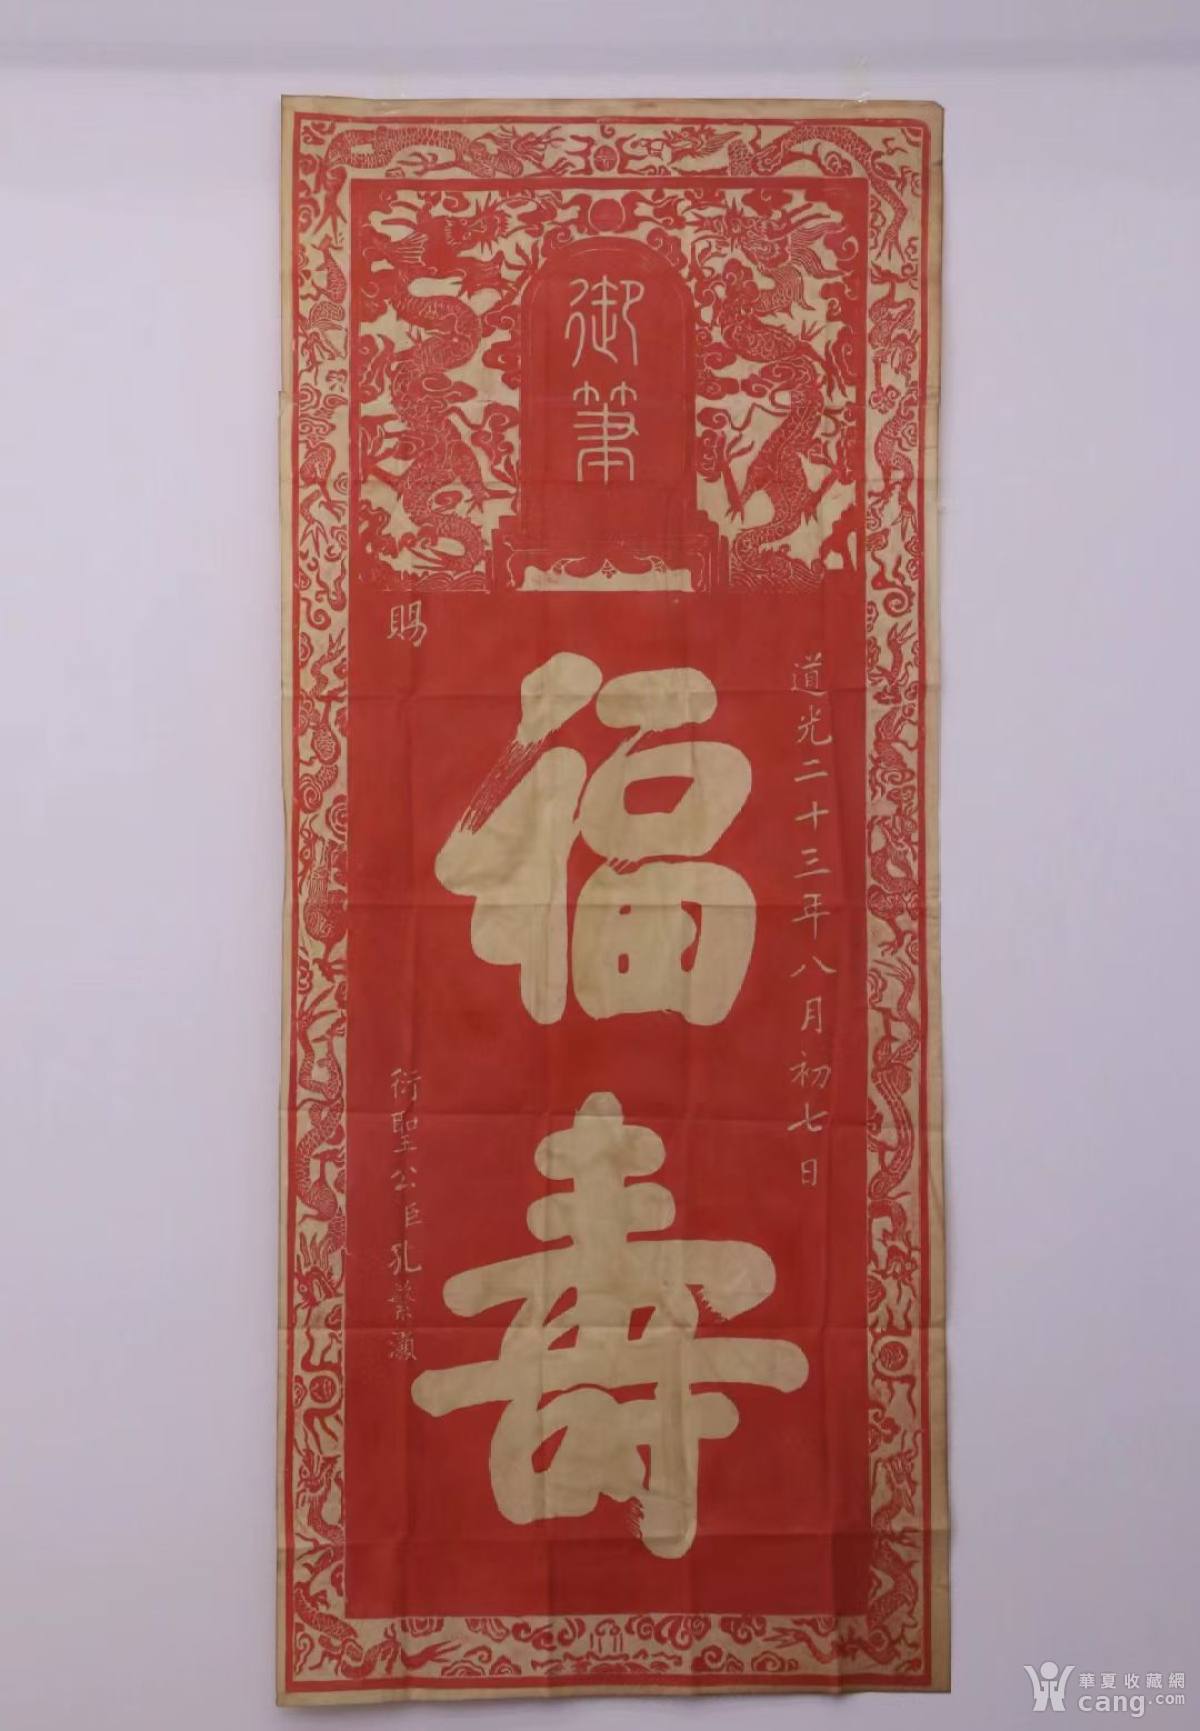 御筆
道光二十三年八月初七日
福壽
賜
衍聖公臣孔繁灝
華夏收藏網
cang.com